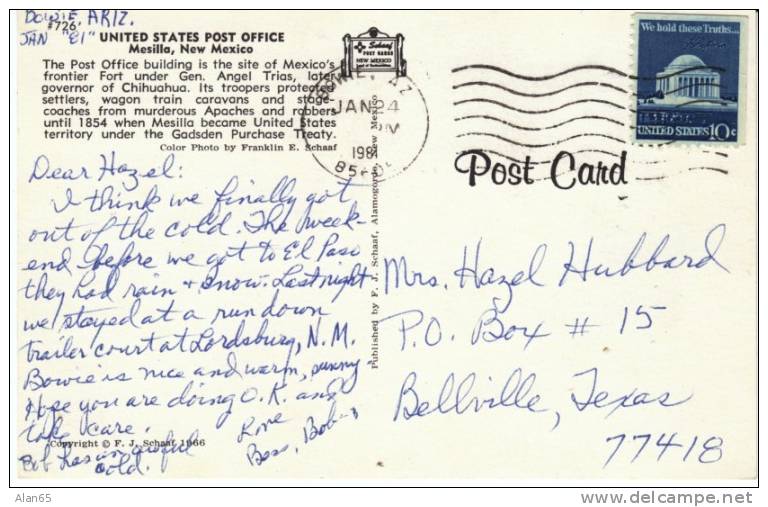 BOWIE, ARIZ.
#726
JAN "81"
UNITED STATES POST OFFICE
Mesilla, New Mexico
The Post Office building is the site of Mexico's
frontier Fort under Gen. Angel Trias, later
governor of Chihuahua. Its troopers protected
settlers, wagon train caravans and stage-
coaches from murderous Apaches and robbers
until 1854 when Mesilla became United States
territory under the Gadsden Purchase Treaty.
Color Photo by Franklin E. Schaaf
Dear Hazel:
I think we finally got
out of the cold. The week-
end before we got to El Paso
they had rain & snow. Last night
we stayed at a run down
trailer court at Lordsburg, N.M.
Bowie is nice and warm, sunny
Hope you are doing O.K. and
take care.
Love
Bess, Bob
Bob has an awful
cold.
Copyright © F. J. Schaaf, 1966
Published by F. J. Schaaf, Alamogordo, New Mexico
Schaaf
POST CARDS
NEW MEXICO
BOWIE, AZ
JAN 24
PM
1981
We hold these Truths...
UNITED STATES 10c
Post Card
Mrs. Hazel Hubbard
P.O. Box # 15
Bellville, Texas
77418
Alan65
http://www.delcampe.net